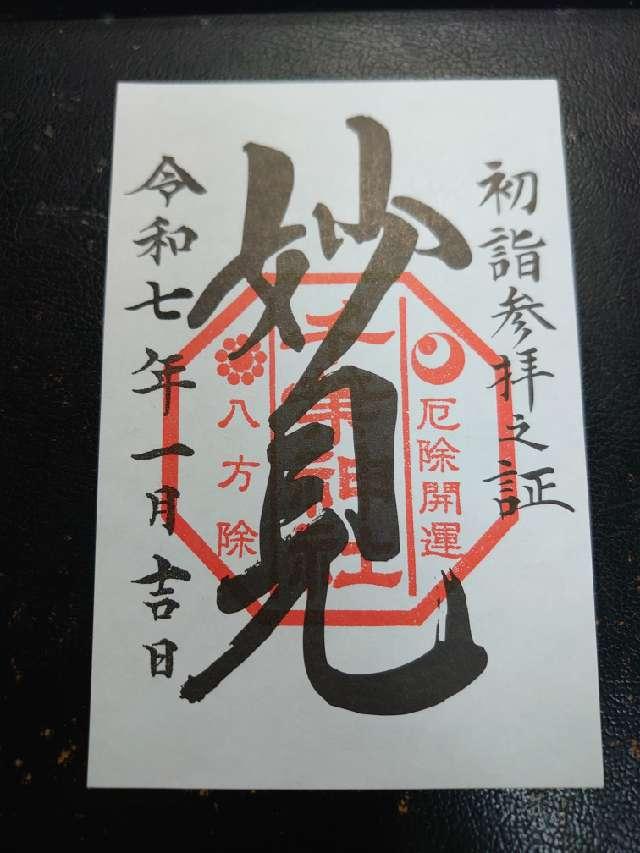 初詣参拝之証
妙見
厄除開運
八方除
令和七年一月吉日